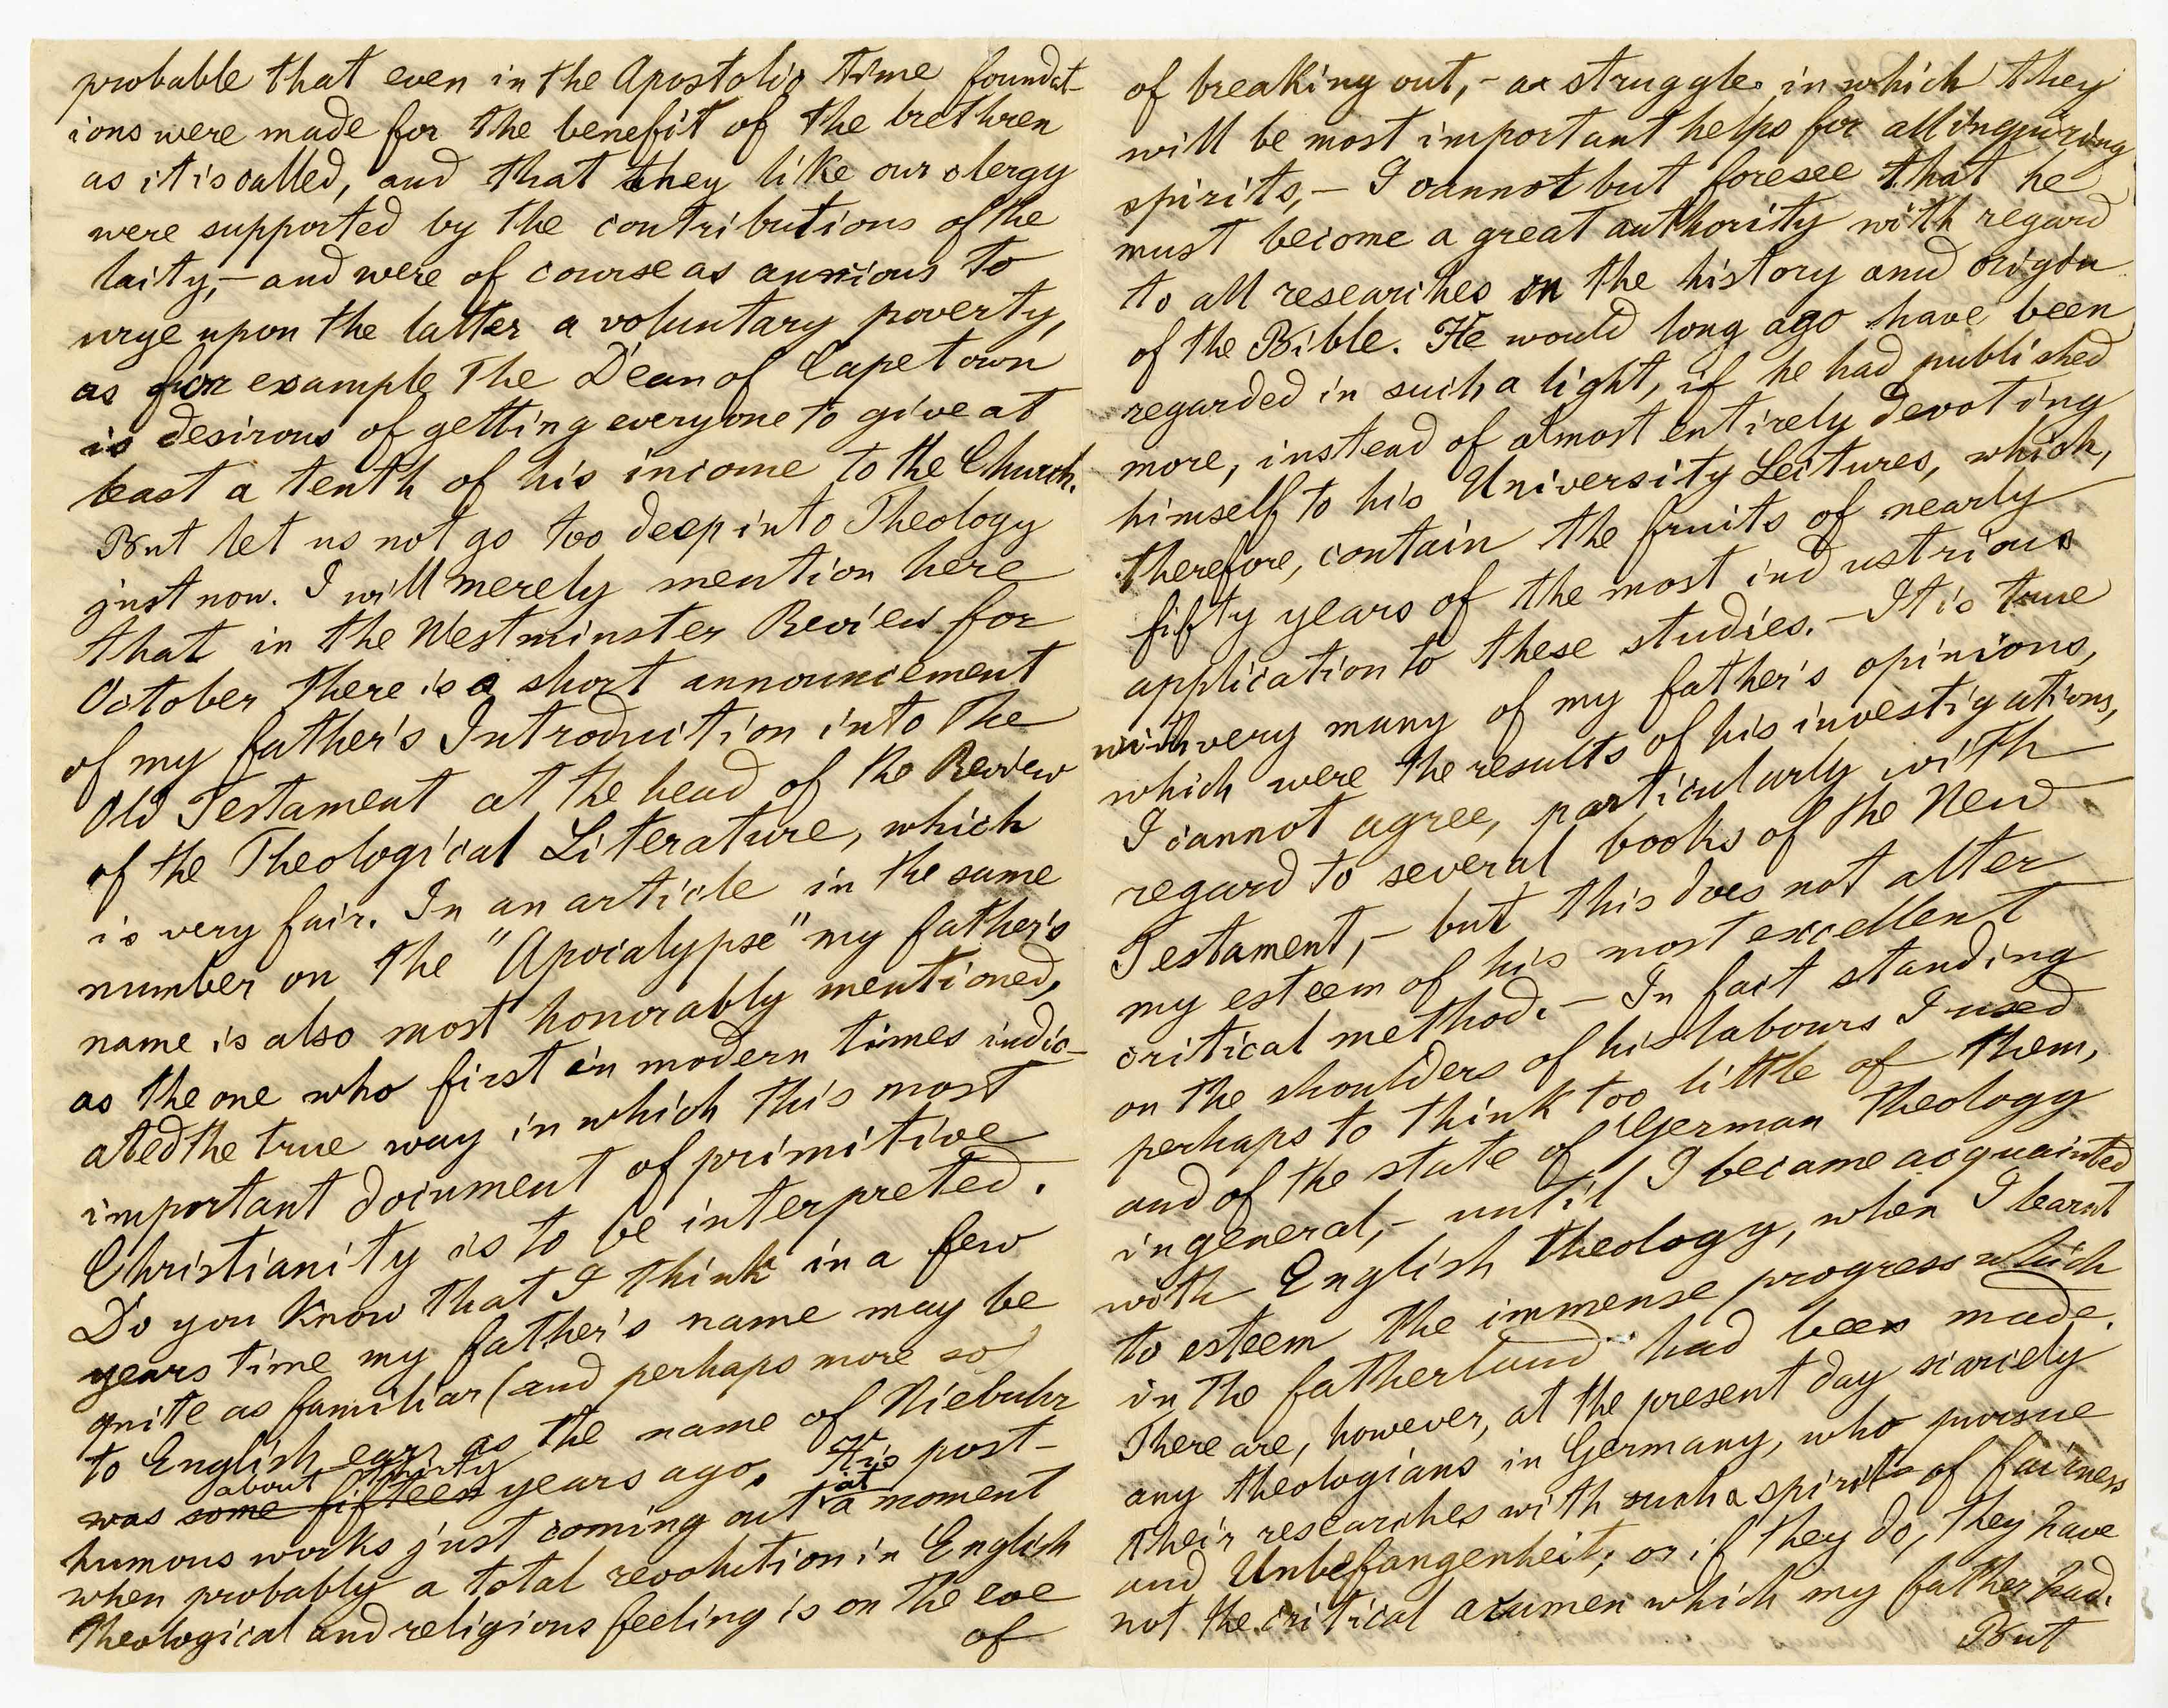 probable that even in the Apostolic time foundat-
ions were made for the benefit of the brethren
as it is called, and that they like our clergy
were supported by the contributions of the
laity,- and were of course as anxious to
urge upon the latter a voluntary poverty,
as for example the Dean of Capetown
is desirous of getting everyone to give at
least a tenth of his income to the Church.
But let us not go too deep into Theology
just now. I will merely mention here
that in the Westminster Review for
October there is a short announcement
of my father's Introduction into the
Old Testament at the head of the Review
of the Theological Literature, which
is very fair. In an article in the same
number on the "Apocalypse" my father's
name is also most honorably mentioned,
as the one who first in modern times indic-
ated the true way in which this most
important document of primitive
Christianity is to be interpreted.
Do you know that I think in a few
years time my father's name may be
quite as familiar (and perhaps more so)
to English ears as the name of Niebuhr
was some fifteen about thirty years ago. His post-
humous works just coming out at a moment
when probably a total revolution in English
theological and religious feeling is on the eve
of
of breaking out,- a struggle in which they
will be most important helps for all inquiring
spirits,- I cannot but foresee that he
must become a great authority with regard
to all researches on the history and origin
of the Bible. He would long ago have been
regarded in such a light, if he had published
more, instead of almost entirely devoting
himself to his University Lectures, which,
therefore, contain the fruits of nearly
fifty years of the most industrious
application to these studies.- It is true
with very many of my father's opinions,
which were the results of his investigations,
I cannot agree, particularly with
regard to several books of the New
Testament,- but this does not alter
my esteem of his most excellent
critical method.- In fact standing
on the shoulders of his labours I used
perhaps to think too little of them,
and of the state of German theology
in general,- until I became acquainted
with English theology, when I learnt
to esteem the immense progress which
in the fatherland had been made.
There are, however, at the present day scarcely
any theologians in Germany, who pursue
their researches with such a spirit of fairness
and Unbefangenheit; or if they do, they have
not the critical acumen which my father had.
But